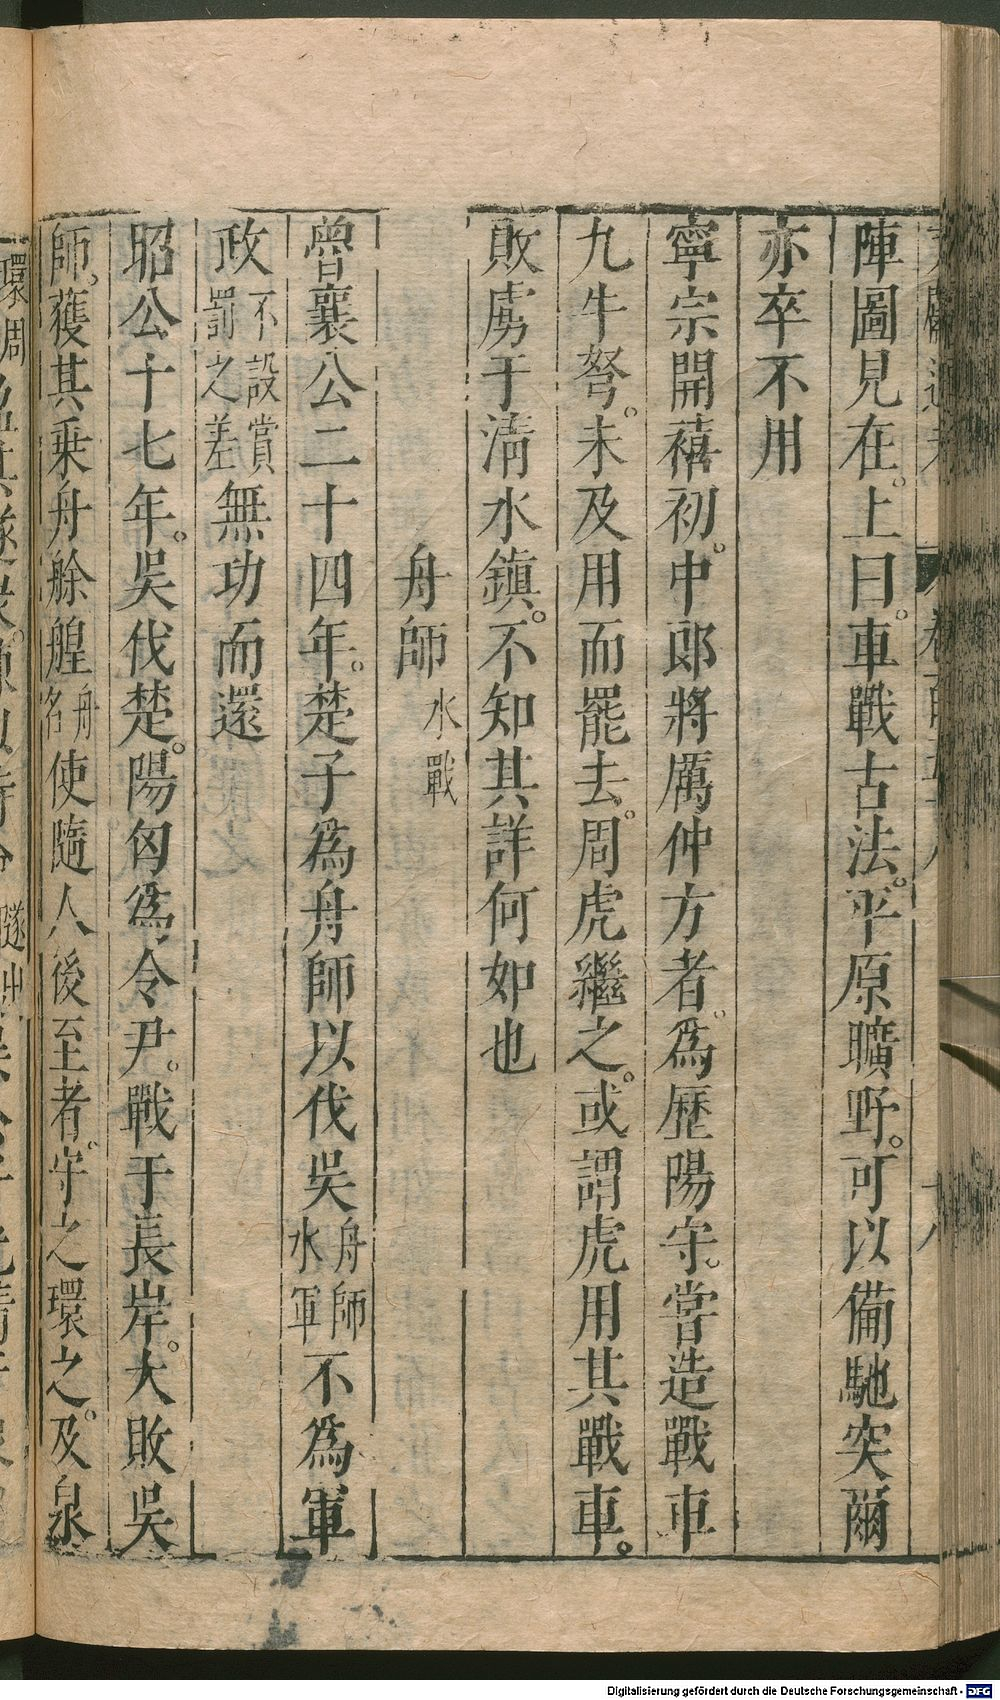 陣圖見在。上曰。車戰古法。平原曠野。可以備馳突爾
亦卒不用
寧宗開禧初。中郎將厲仲方者。為歷陽守。嘗造戰車
九牛弩。未及用而罷去。周虎繼之。或謂虎用其戰車。
敗虜于清水鎮。不知其詳何如也
舟師水戰
曾襄公二十四年。楚子為舟師以伐吳舟師水軍不為軍
政不設賞罰之差無功而還
昭公十七年。吳伐楚。陽匄為令尹。戰于長岸。大敗吳
師。獲其乗舟艅艎舟名使隨人後至者。守之環之。及泉
Digitalisierung gefördert durch die Deutsche Forschungsgemeinschaft - DFG